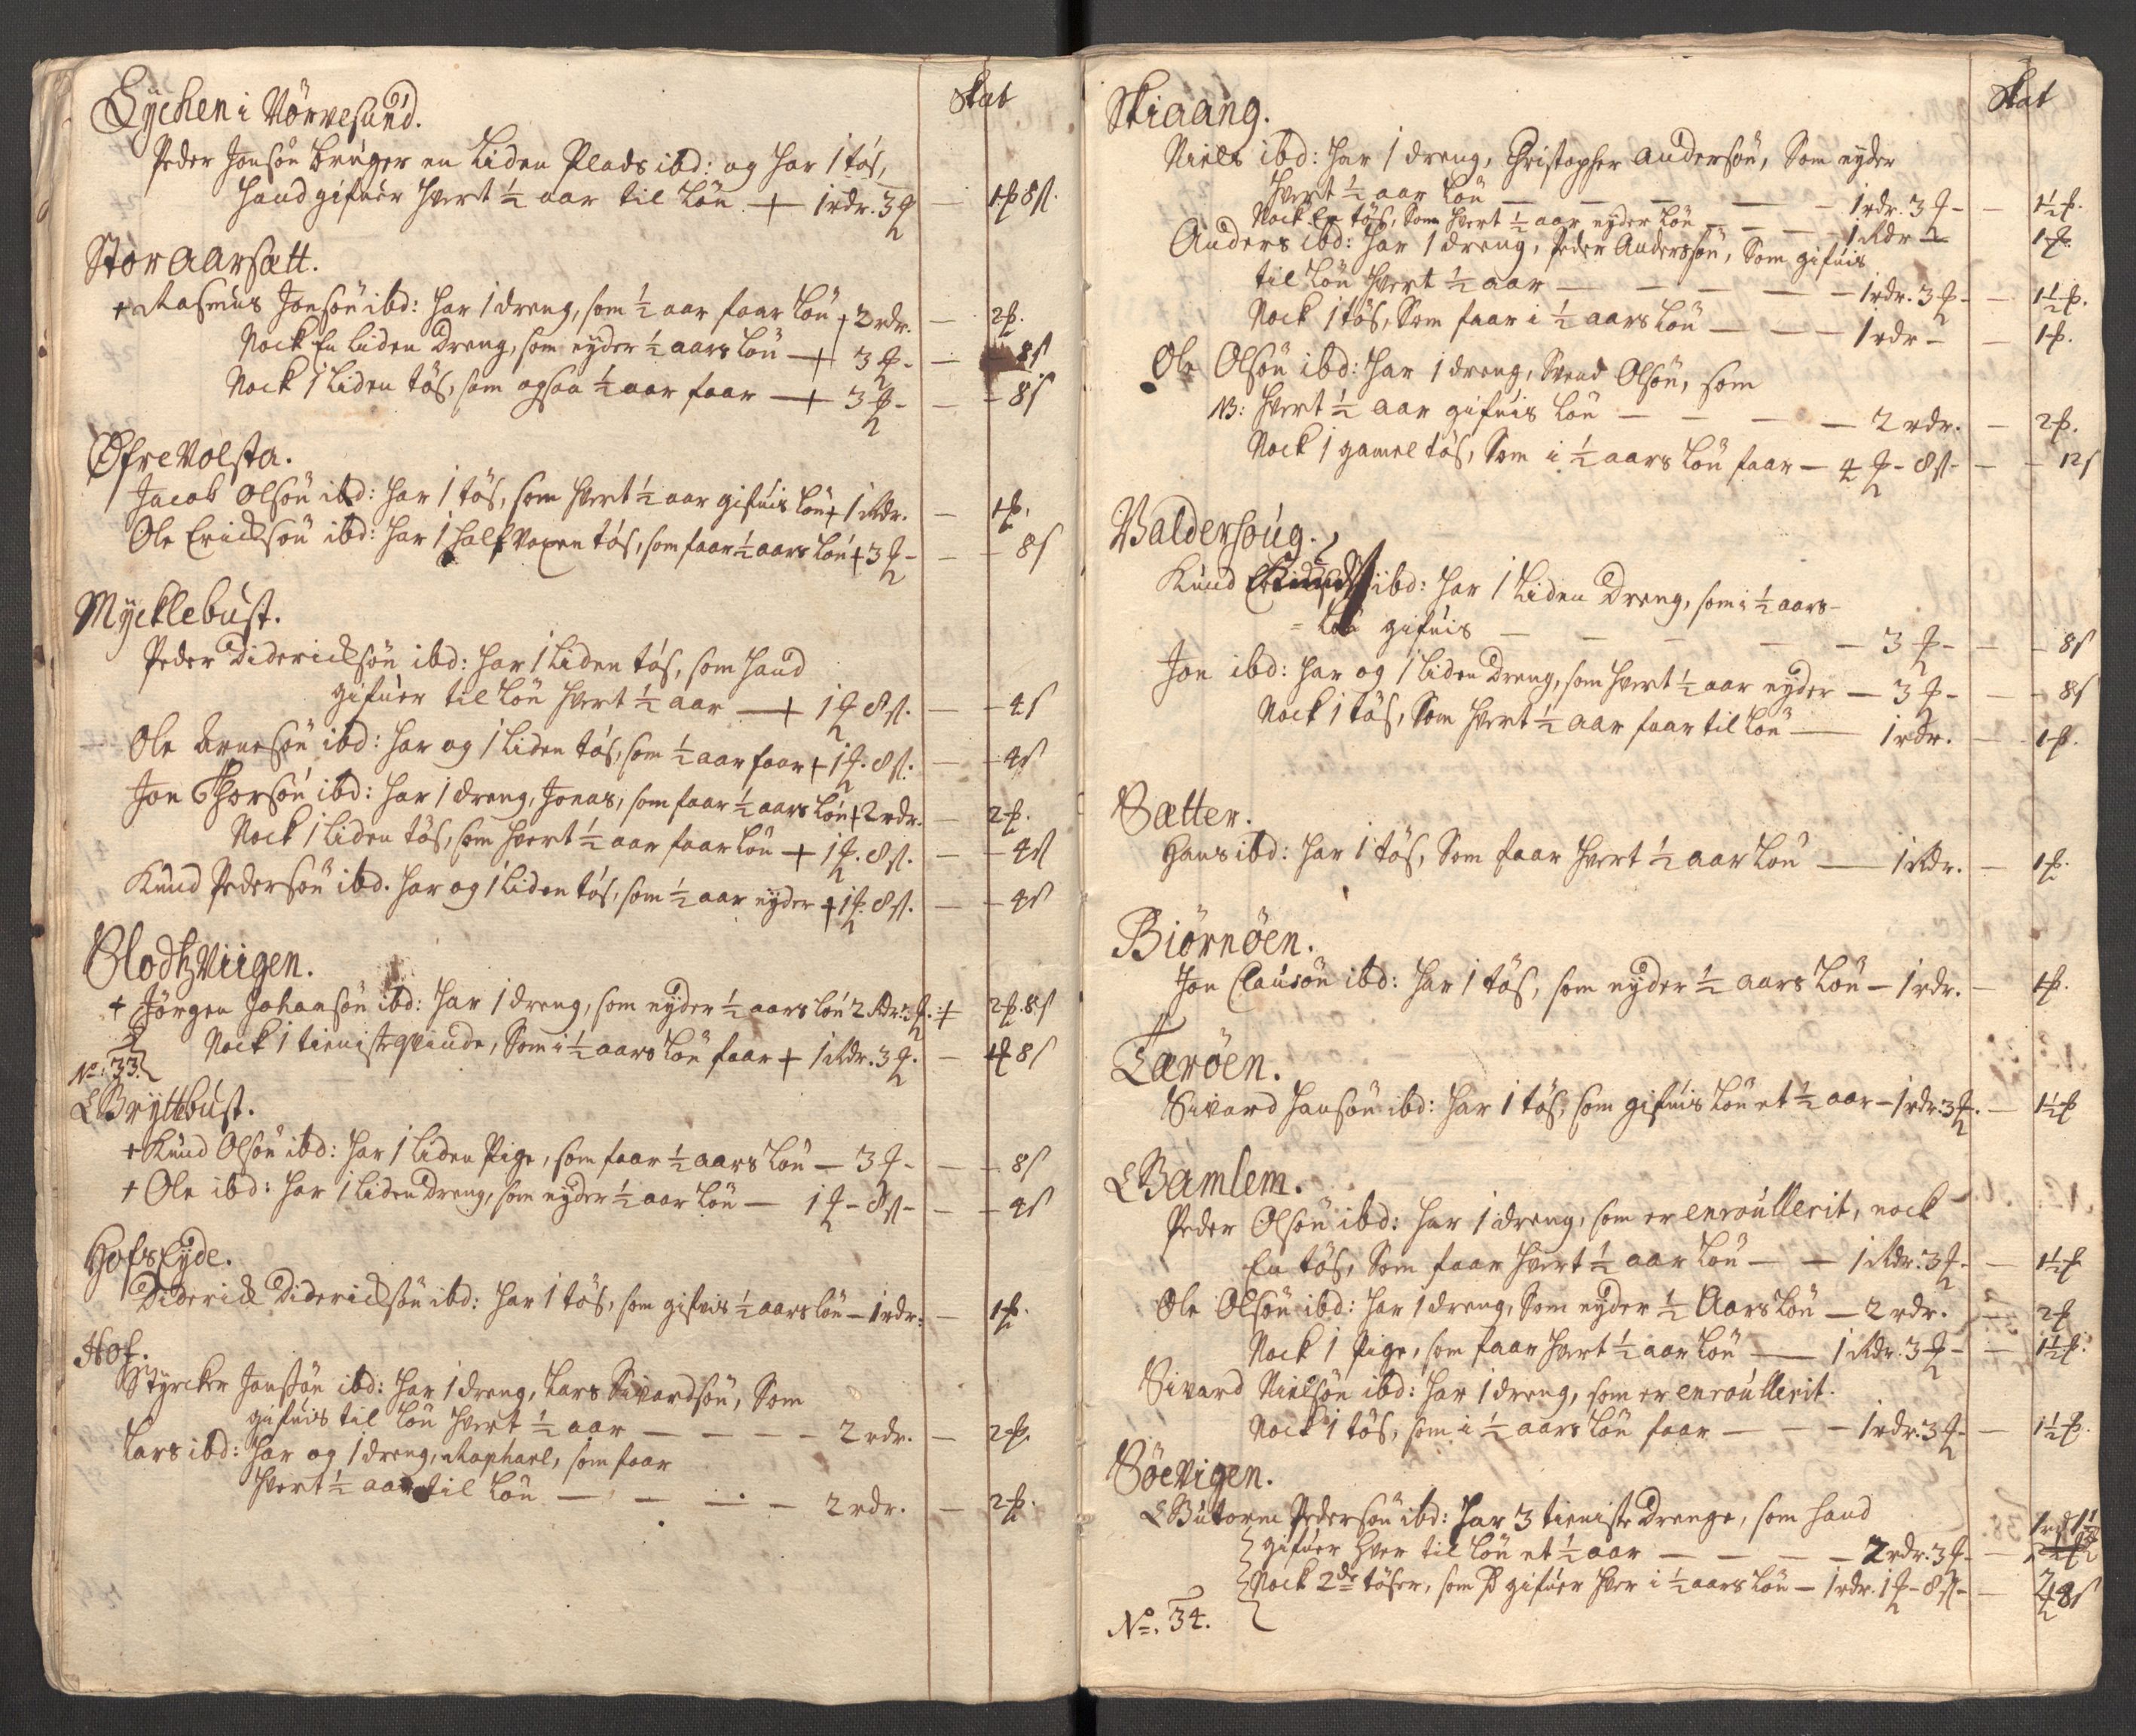 Skat
Eÿchen i Nörvesund.
Peder Jonsön brúger en liden Plads ibd: og har 1 tös,
hand gifuer hvert ½ aar til Lön + 1 rdr. 3 ℔ — 1 ℔ 8 s.
Stor Aarsætt.
+ Rasmus Jonsön ibd: har 1 dreng, som ½ aar faar Lön + 2 rdr. — 2 ℔.
Nock En liden Dreng, som nyder ½ aars Lön + 3 ℔ — 8 s
Nock 1 liden tös, som ogsaa ½ aar faar + 3 ℔ — 8 s
Øfre Volsta.
Jacob Olsön ibd: har 1 tös, som hvert ½ aar gifuis Lön + 1 Rdr. — 1 ℔.
Ole Ericksön ibd: har 1 half Voxen tös, som faar ½ aars Lön + 3 ℔ — 8 s
Mÿcklebust.
Peder Didericksön ibd: har 1 liden tös, som hand
gifuer til Lön hvert ½ aar + 1 ℔ 8 s. — 4 s
Ole Arnesön ibd: har og 1 liden tös, som ½ aar faar + 1 ℔. 8 s. — 4 s
Jon Thorsön ibd: har 1 dreng, Jonas, som faar ½ aars Lön + 2 rdr. — 2 ℔.
Nock 1 liden tös, som hvert ½ aar faar Lön + 1 ℔. 8 s. — 4 s
Knud Pedersön ibd. har og 1 liden tös, som ½ aar nyder + 1 ℔. 8 s. — 4 s
Blodtzviigen.
+ Jörgen Johansön ibd: har 1 dreng, som nyder ½ aars Lön 2 Rdr. 3 ℔. + 2 ℔. 8 s
Nock 1 tieniste qvinde, Som i ½ aars Lön faar + 1 Rdr. 3 ℔. — 1 ℔ 8 s
No: 33.
Brÿttebust.
+ Knud Olsön ibd: har 1 liden Pige, som faar ½ aars Lön — 3 ℔ — 8 s
+ Ole ibd: har 1 liden Dreng, som nyder ½ aar Lön — 1 ℔ - 8 s — 4 s
Hofs Eÿde.
Diderick Didericksön ibd: har 1 tös, som gifuis ½ aars Lön — 1 rdr: — 1 ℔.
Hof.
Stÿrcker Jonsön ibd: har 1 dreng, Lars Sivardsön, Som
gifuis til Lön hvert ½ aar — 2 rdr. — 2 ℔.
Lars ibd: har og 1 dreng, Raphael, som faar
hvert ½ aar til Lön — 2 rdr. — 2 ℔.
Skat
Skiaang.
Niels ibd: har 1 dreng, Christopher Andersön, Som nyder
hvert ½ aar Lön — 1 rdr. 3 ℔ — 1½ ℔.
Nock En tös, Som hvert ½ aar nyder Lön — 1 Rdr — 1 ℔.
Anders ibd: har 1 dreng, Peder Anderssön, Som gifuis
til Lön hvert ½ aar — 1 rdr. 3 ℔ — 1½ ℔.
Nock 1 tös, Som faar i ½ aars Lön — 1 rdr — 1 ℔.
Ole Olsön ibd: har 1 dreng, Svend Olsön, som
NB: hvert ½ aar gifuis Lön — 2 rdr. — 2 ℔.
Nock 1 gamel tös, Som i ½ aars Lön faar — 4 ℔ - 8 s — 12 s
Valdersoúg.
Knud ibd: har 1 liden Dreng, som i ½ aars-
= Lön gifuis — 3 ℔ — 8 s
Jon ibd: har og 1 liden Dreng, som hvert ½ aar nyder — 3 ℔ — 8 s
Nock 1 tös, Som hvert ½ aar faar til Lön — 1 rdr. — 1 ℔.
Sætter.
Hans ibd: har 1 tös, Som faar hvert ½ aar Lön — 1 Rdr. — 1 ℔.
Biörnöen.
Jon Clausön ibd: har 1 tös, som nyder ½ aars Lön — 1 rdr. — 1 ℔.
Tæröen.
Sivard Hansön ibd: har 1 tös, som gifuis Lön et ½ aar — 1 rdr. 3 ℔. — 1½ ℔
Gamlem.
Peder Olsön ibd: har 1 dreng, som er enroúllerit, nock
En tös, Som faar hvert ½ aar Lön — 1 Rdr. 3 ℔ — 1½ ℔
Ole Olsön ibd: har 1 dreng, Som nyder ½ Aars Lön — 2 rdr. — 2 ℔
Nock 1 Pige, som faar hvert ½ aar Lön — 1 Rdr. 3 ℔ — 1½ ℔.
Sivard Nielsön ibd: har 1 dreng, som er enroúllerit.
Nock 1 tös, som i ½ aars Lön faar — 1 rdr. 3 ℔ — 1½ ℔.
Söevigen.
Gútorm Pedersön ibd: har 3 tieniste Drenge, som hand
gifuer hver til Lön et ½ aar — 2 rdr. 3 ℔ —
Nock 2de töser, som gifuer hver i ½ aars Lön — 1 rdr. 1 ℔ - 8 s —
No. 34.